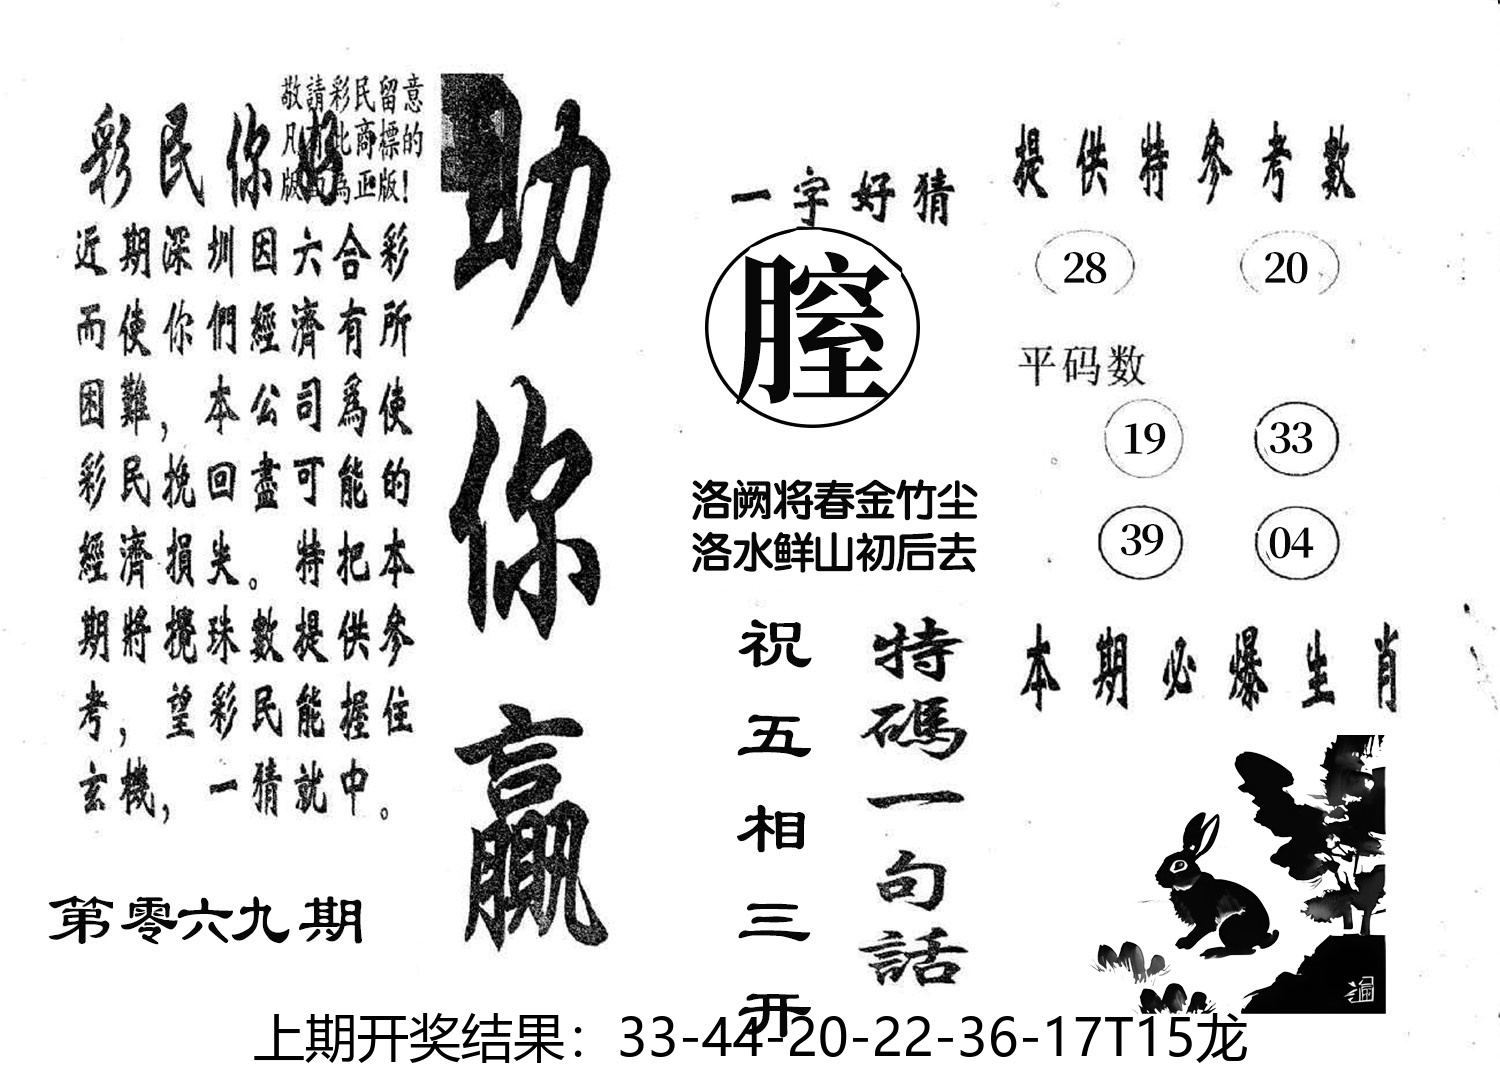 敬請彩民留意
凡有此商標的
版面為正版！
彩民你好
近期深圳因六合彩
而使你們經濟有所
困難，本公司爲使
彩民挽回盡可能的
經濟損失。特把本
期將攪珠數提供參
考，望彩民能握住
玄機，一猜就中。
第零六九期
助你贏
一字好猜
膣
洛阙将春金竹尘
洛水鲜山初后去
特碼一句話
祝五相三开
提供特參考數
28 20
平码数
19 33
39 04
本期必爆生肖
上期开奖结果：33-44-20-22-36-17T15龙